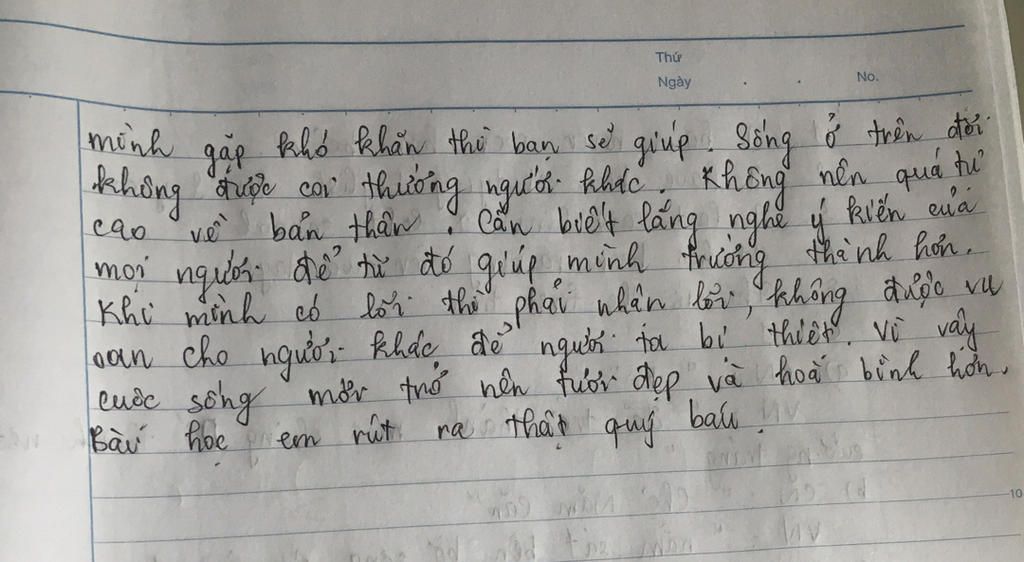 Thứ
Ngày . . No.
mình gặp khó khăn thì bạn sẽ giúp. Sống ở trên đời
không được coi thường người khác. Không nên quá tự
cao về bản thân. Cần biết lắng nghe ý kiến của
mọi người để từ đó giúp mình trưởng thành hơn.
Khi mình có lỗi thì phải nhận lỗi, không được vu
oan cho người khác để người ta bị thiệt. Vì vậy
cuộc sống mới trở nên tươi đẹp và hoà bình hơn.
Bài học em rút ra thật quý báu.
10